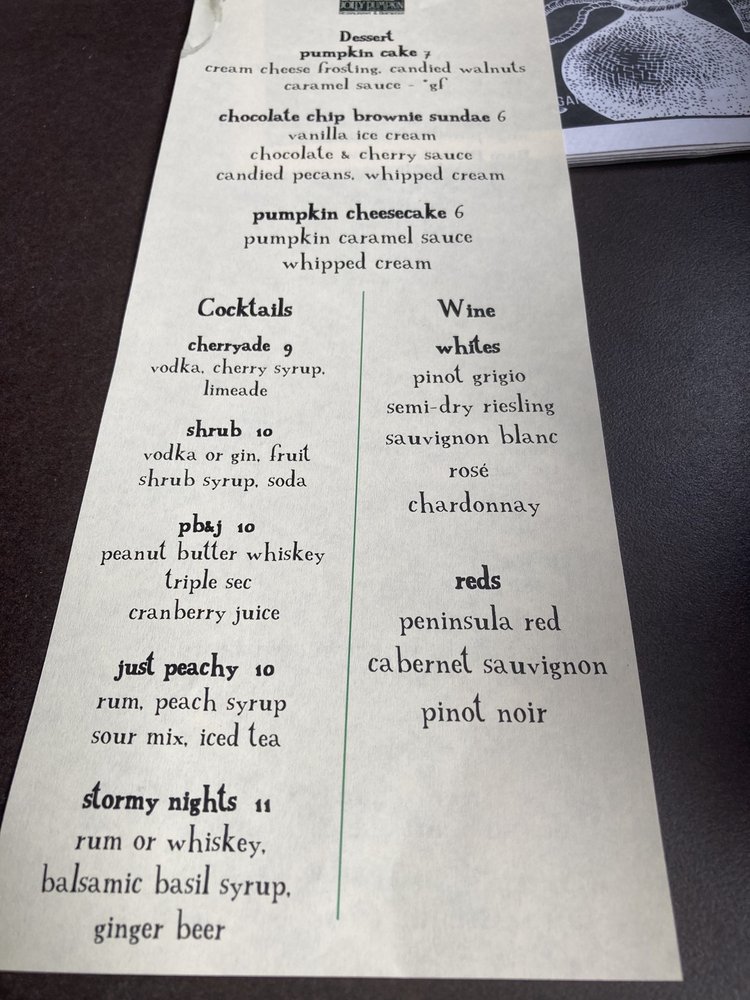 JOLLY PUMPKIN
Dessert
pumpkin cake 7
cream cheese frosting, candied walnuts
caramel sauce - *gf
chocolate chip brownie sundae 6
vanilla ice cream
chocolate & cherry sauce
candied pecans, whipped cream
pumpkin cheesecake 6
pumpkin caramel sauce
whipped cream
Cocktails
cherryade 9
vodka, cherry syrup,
limeade
shrub 10
vodka or gin, fruit
shrub syrup, soda
pb&j 10
peanut butter whiskey
triple sec
cranberry juice
just peachy 10
rum, peach syrup
sour mix, iced tea
stormy nights 11
rum or whiskey,
balsamic basil syrup,
ginger beer
Wine
whites
pinot grigio
semi-dry riesling
sauvignon blanc
rosé
chardonnay
reds
peninsula red
cabernet sauvignon
pinot noir